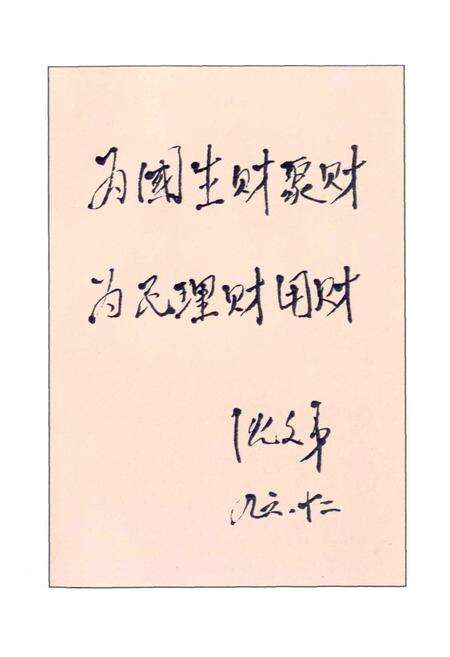 为國生财聚财
为民理财用财
文
九六.十二